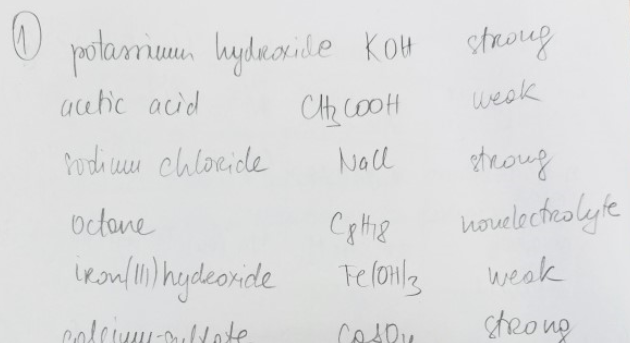 ① potassium hydroxide KOH strong
acetic acid CH3COOH weak
sodium chloride NaCl strong
octane C8H18 nonelectrolyte
iron(III)hydroxide Fe(OH)3 weak
calcium-sulfate CaSO4 strong